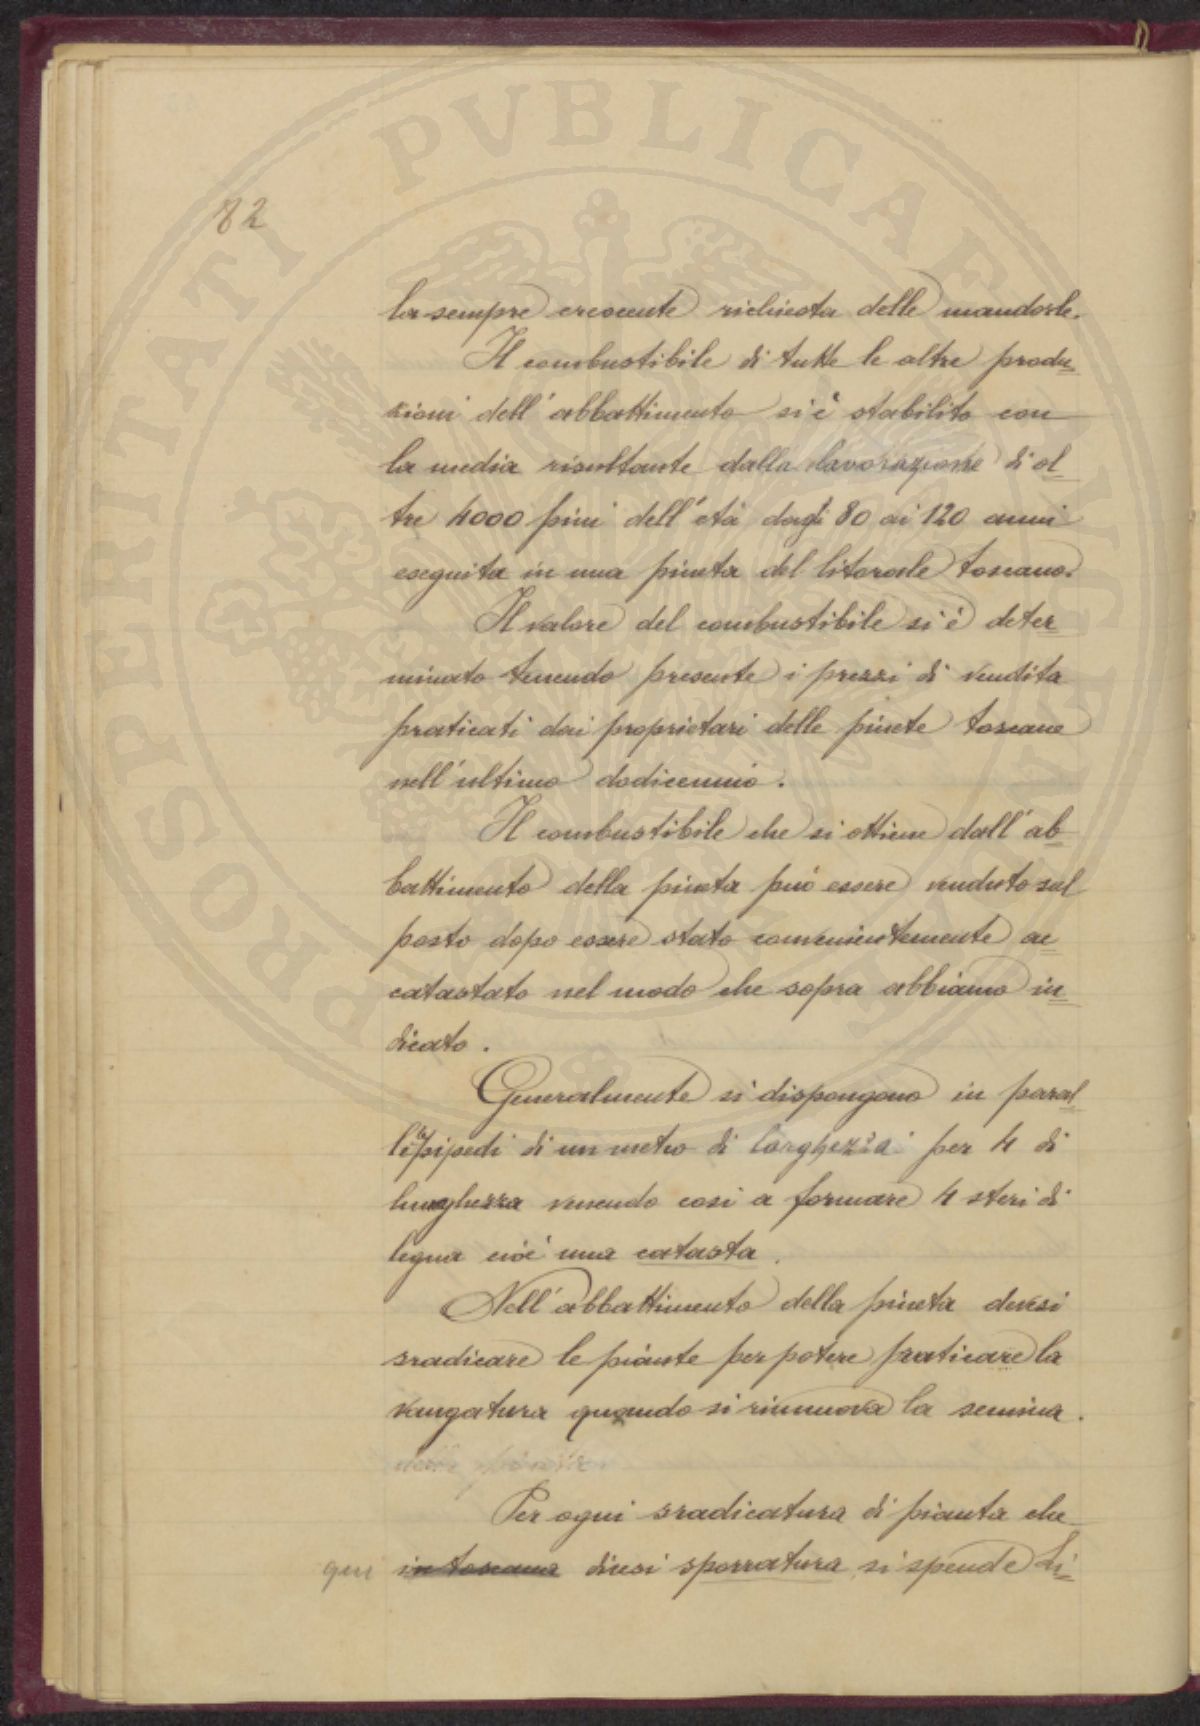 82
la sempre crescente richiesta delle mandorle.
Il combustibile di tutte le altre produ=
zioni dell'abbattimento si è stabilito con
la media risultante dalla lavorazione di ol=
tre 4000 pini dell'età dagli 80 ai 120 anni
eseguita in una pineta del litorale toscano.
Il valore del combustibile si è deter=
minato tenendo presente i prezzi di vendita
praticati dai proprietari delle pinete toscane
nell'ultimo dodicennio.
Il combustibile che si ottiene dall'ab=
battimento della pineta può essere venduto sul
posto dopo essere stato convenientemente ac=
catastato nel modo che sopra abbiamo in=
dicato.
Generalmente si dispongono in paral=
lepipedi di un metro di larghezza per 4 di
lunghezza venendo così a formare 4 steri di
legna cioè una catasta.
Nell'abbattimento della pineta devesi
sradicare le piante per potere praticare la
vangatura quando si rinnuova la semina.
Per ogni sradicatura di pianta che
qui in toscana dicesi sporratura si spende Li=
PROSPERITATI PVBLICAE